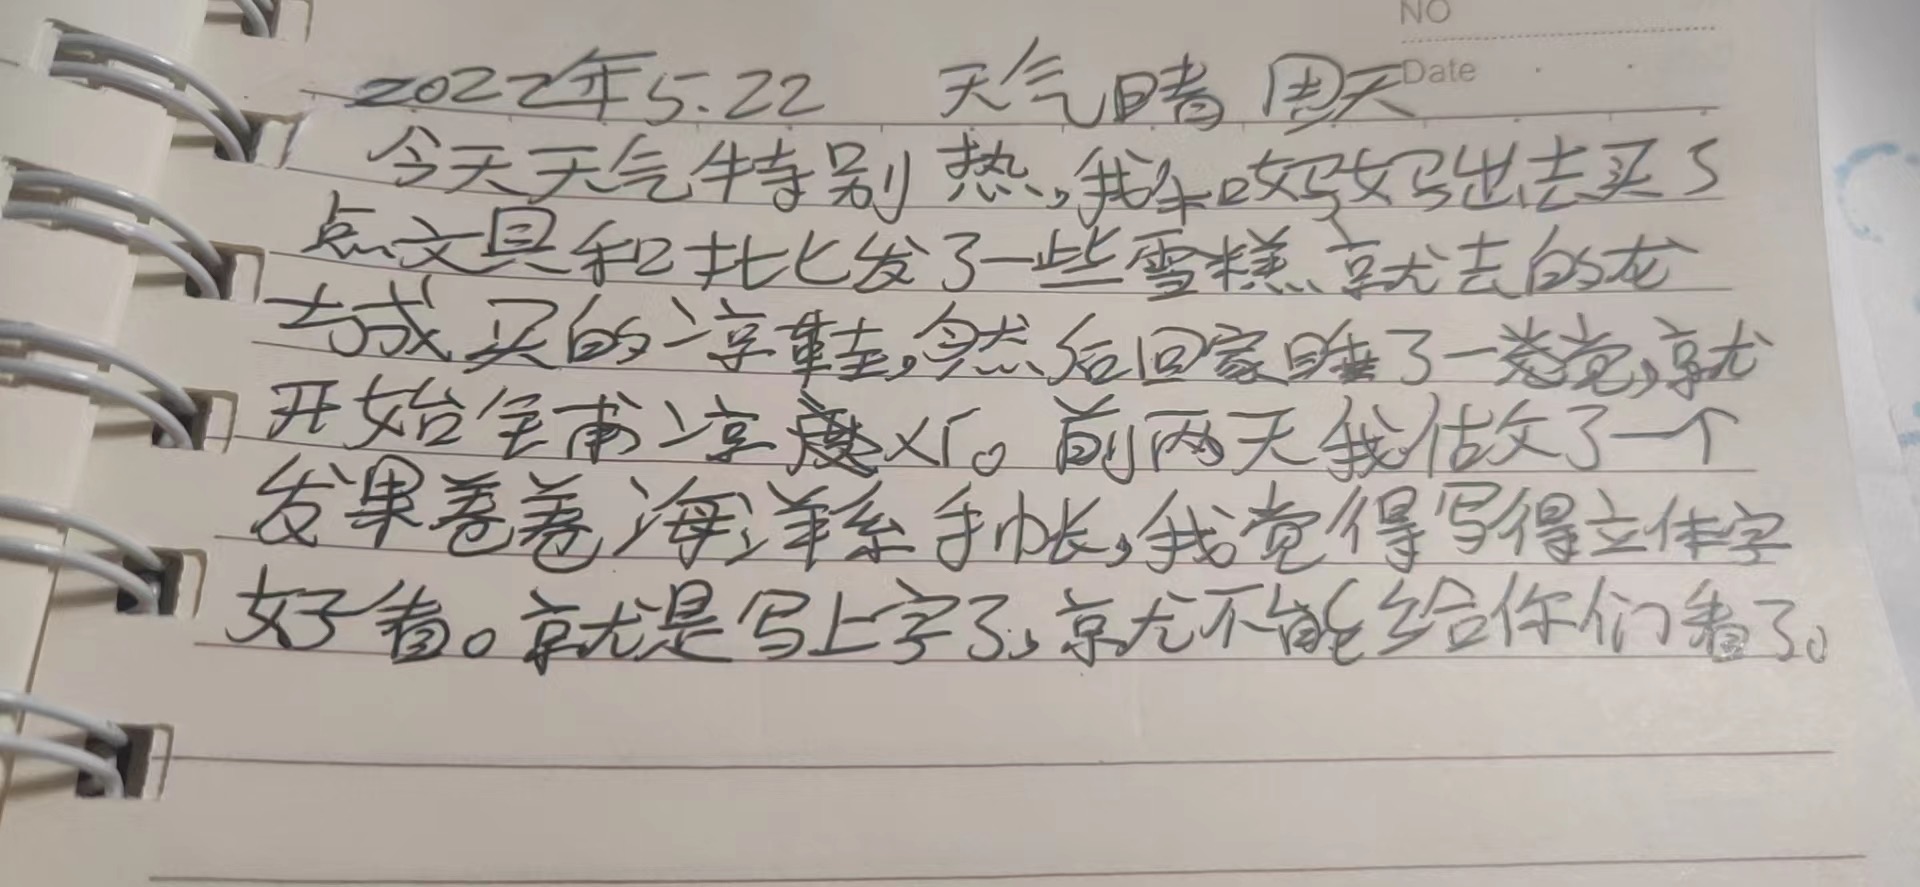 NO
Date
2022年5.22 天气晴 周天
今天天气特别热,我和妈妈出去买了
点文具和批发了一些雪糕、就去的龙
城买的凉鞋,然后回家睡了一觉,就
开始全甫凉。前两天我做了一个
发果卷卷海洋系手帐,我觉得写得立体字
好看。就是写上字了,就不能给你们看了。